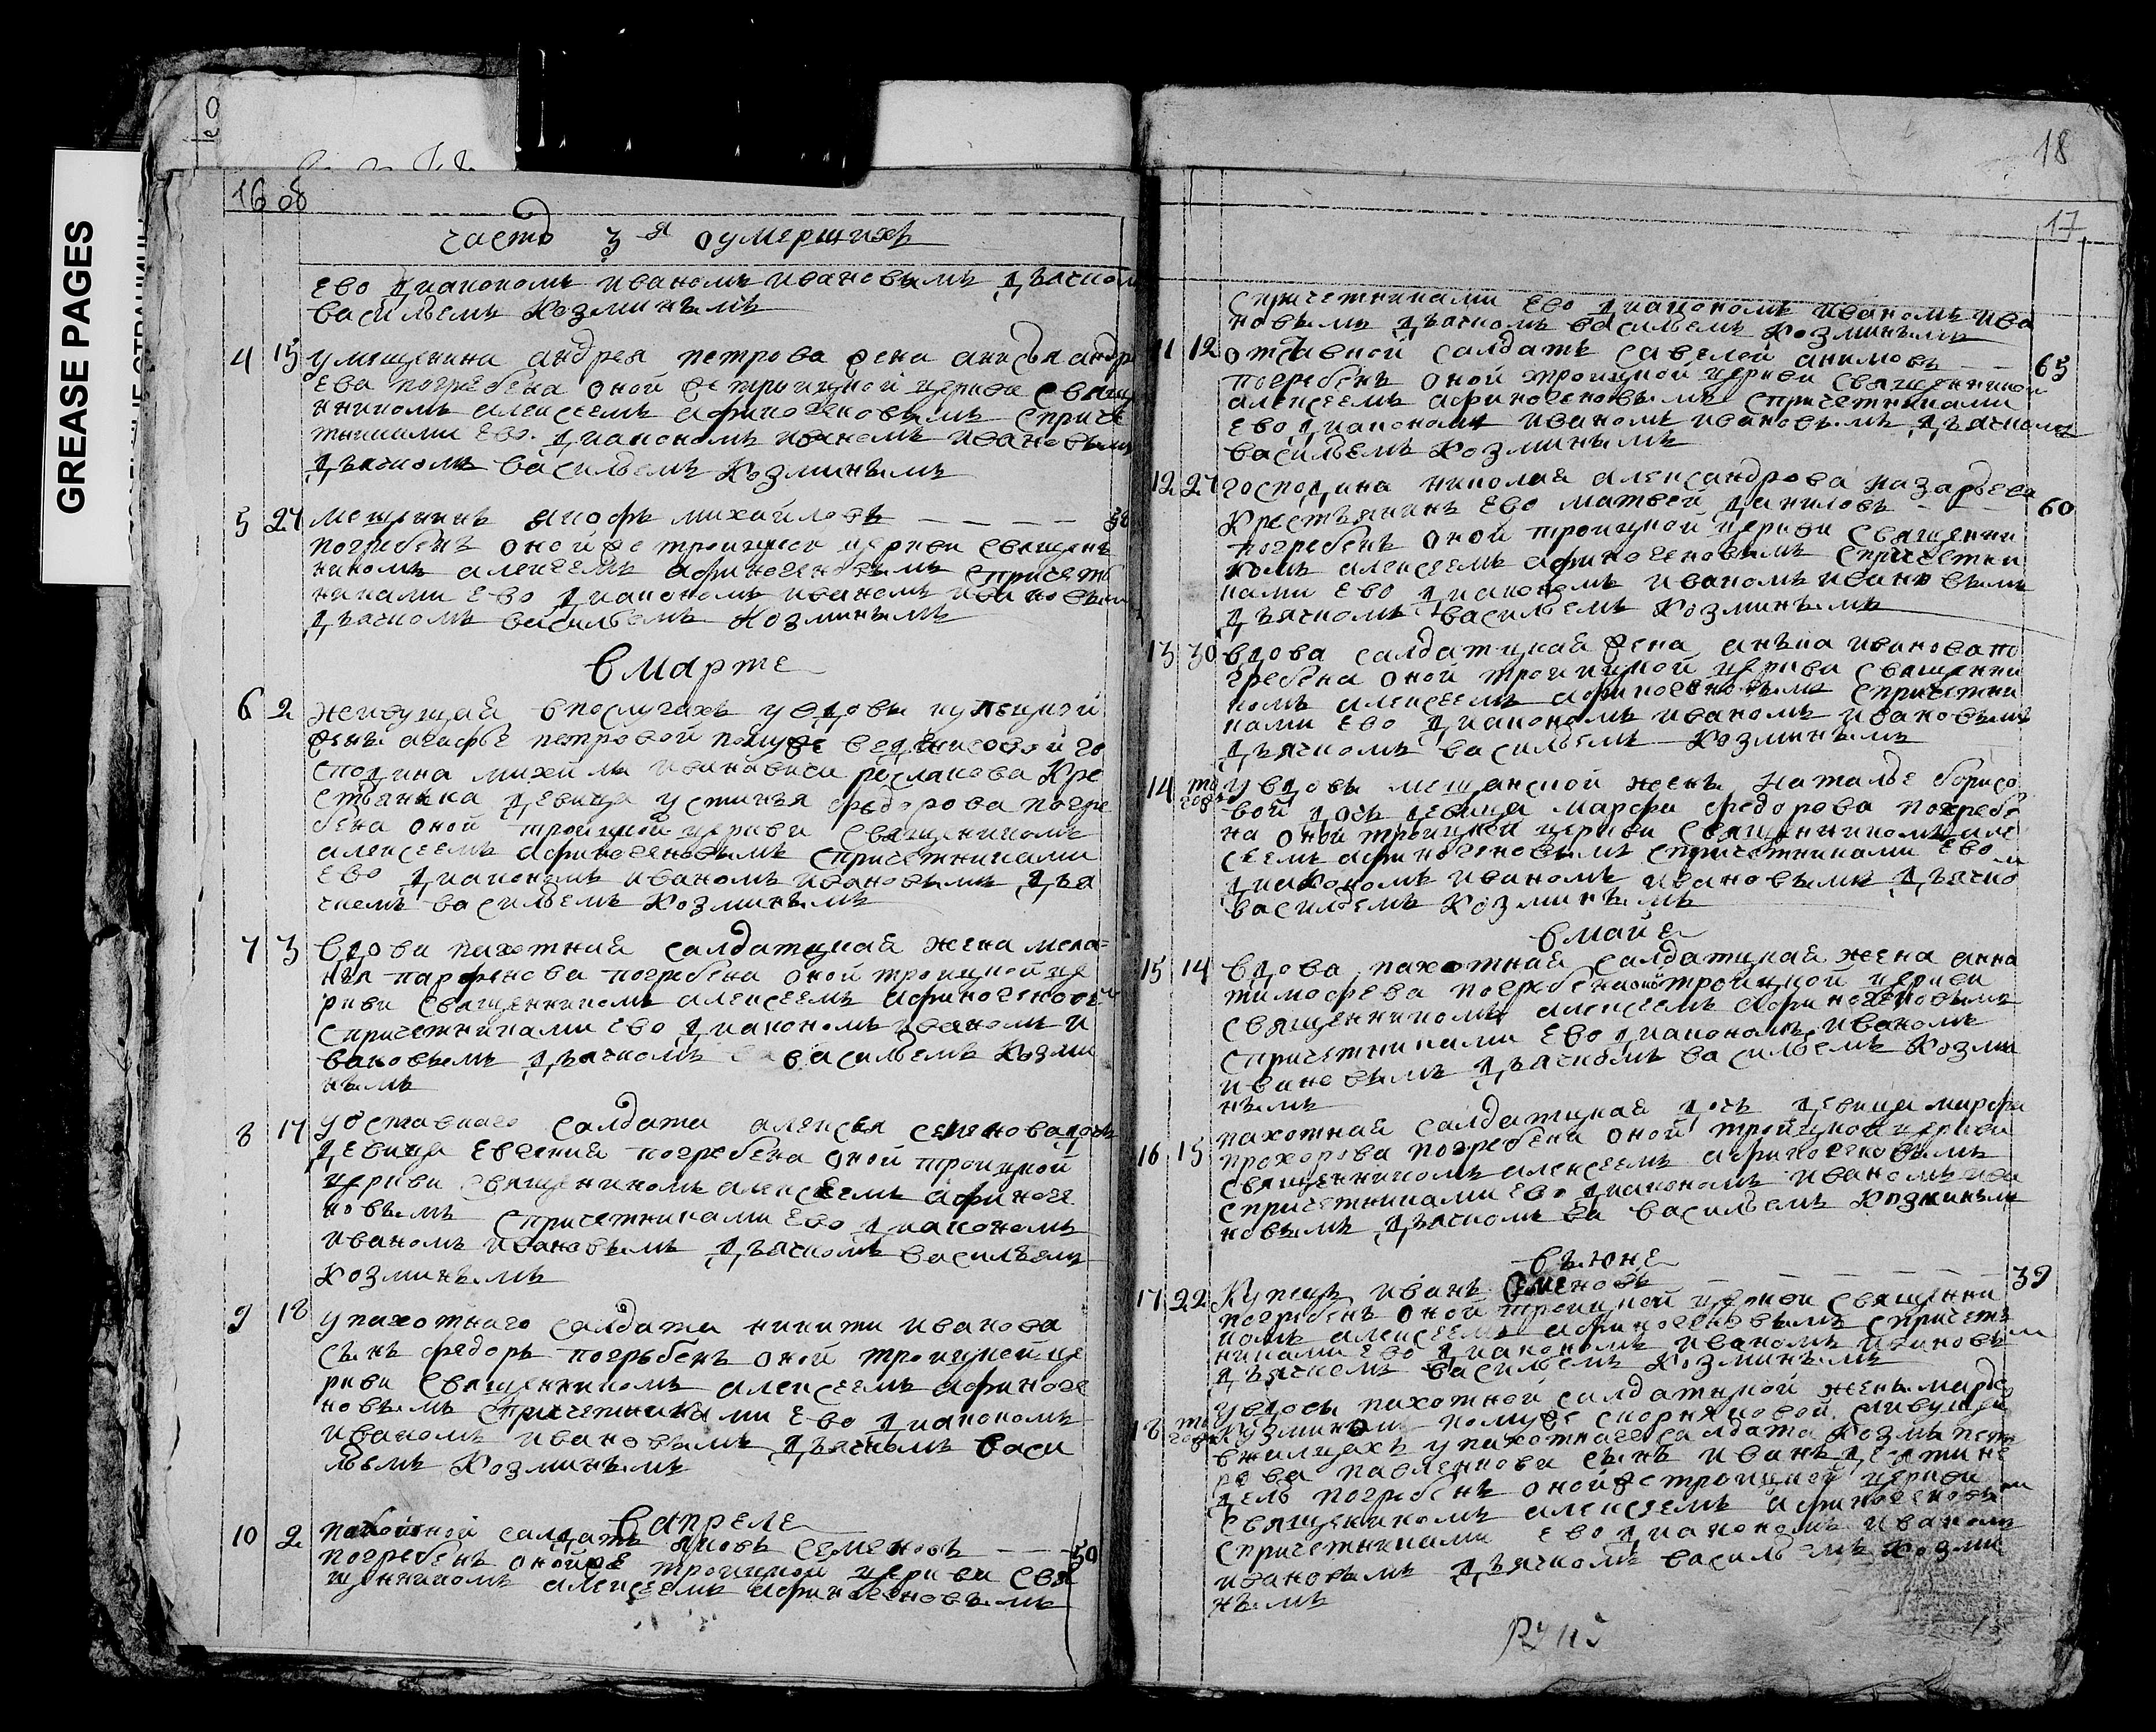 GREASE PAGES
16 об
часть 3я о умерших
ево диакономъ иваномъ ивановымъ дьячком
васильемъ козминымъ
4 15 у мещенина андрея петрова жена анисья андре
ева погребена оной же троицкой церкви свяще
нникомъ алексеемъ афиногеновымъ с приче
тниками ево диакономъ иваномъ ивановымъ
дьячкомъ васильемъ козминымъ
5 27 мещенинъ михайловъ — — — —
погребенъ оной же троицкой церкви священъ
никомъ алексеемъ афиногеновымъ с причетъ
никами ево диакономъ иваномъ ивановым
дьячкомъ васильемъ козминымъ
в марте
6 2 живущая в послугахъ у вдовы купецкой
жены агафье петровой по муже го
сподина михаила ивановича росланова кре
стьянка девица устинья федорова погре
бена оной троицкой церкви священикомъ
алексеемъ афиногеновымъ с причетниками
ево диакономъ иваномъ ивановымъ дья
чкомъ васильемъ козминымъ
7 3 вдова пахотная салдатцкая жена мела=
нья парфенова погребена оной троицкой це
ркви священникомъ алексеемъ афиногеновым
с причетниками ево диакономъ иваномъ и
вановымъ дьячкомъ васильемъ козми
нымъ
8 17 у отставнаго салдата алексея семенова дочь
девица евгения погребена оной троицкой
церкви священикомъ алексеемъ афиноге
новымъ с причетниками ево диакономъ
иваномъ ивановымъ дьячкомъ васильемъ
козминымъ
9 18 у пахотнаго салдата никиты иванова
сынъ федоръ погрьбенъ оной троицкой це
ркви священникомъ алексеемъ афиноге
новымъ с причетниками ево диакономъ
иваномъ ивановымъ дьячкомъ васи
льемъ козминымъ
в апреле
10 2 пахотной салдатъ яковъ семеновъ — — 50
погребенъ оной же троицкой церкви свя
щенникомъ алексеемъ афиногеновымъ
18
17
с причетниками ево диакономъ иваномъ ива
новымъ дьячкомъ васильемъ козминымъ
11 12 отставной салдатъ савелей акимовъ — — 65
погребенъ оной троицкой церкви священником
алексеемъ афиногеновымъ с причетниками
ево диакономъ иваномъ ивановымъ дьячкомъ
васильемъ козминымъ
12 27 господина николая александрова назарьева
крестьянинъ ево матвей даниловъ — — 60
погребенъ оной троицкой церкви священни
комъ алексеемъ афиногеновымъ с причетни
ками ево диакономъ иваномъ ивановымъ
дьячкомъ васильемъ козминымъ
13 30 вдова салдатцкая жена анъна иванова по
гребена оной троицкой церкви священни
комъ алексеемъ афиногеновымъ с причетни
ками ево диакономъ иваномъ ивановымъ
дьячкомъ васильемъ козминымъ
14 того ж у вдовы мещанской жены наталье борисо
вой дочь девица марфа федорова погребе
на оной троицкой церкви священникомъ алек
сеемъ афиногеновымъ с причетниками ево
диакономъ иваномъ ивановымъ дьячком
васильемъ козминымъ
в майе
15 14 вдова пахотная салдатцкая жена анна
тимофеева погребена оной троицкой церкви
священникомъ алексеемъ афиногеновымъ
с причетниками ево диакономъ иваномъ
ивановымъ дьячкомъ васильемъ козми
нымъ
16 15 пахотная салдатцкая дочь девица марфа
прохорова погребена оной троицкой церкви
священникомъ алексеемъ афиногеновымъ
с причетниками ево диакономъ иваномъ ива
новымъ дьячкомъ ва васильемъ козминымъ
въ юне
17 22 купецъ иванъ семеновъ — — — — — 39
погребенъ оной троицкой церкви священни
комъ алексеемъ афиногеновымъ с причетъ
никами ево диакономъ иваномъ ивановым
дьячкомъ васильемъ козминымъ
18 того ж у вдовы пахотной салдатцкой жены марье
кузминой по муже скорняковой живущей
в жилцахъ у пахотнаго салдата козмы пет
рова павленкова сынъ иванъ дватцати не
дель погребенъ оной же троицкой церкви
священикомъ алексеемъ афиногеновым
с причетниками ево диакономъ иваномъ
ивановымъ дьячкомъ васильемъ козми
нымъ